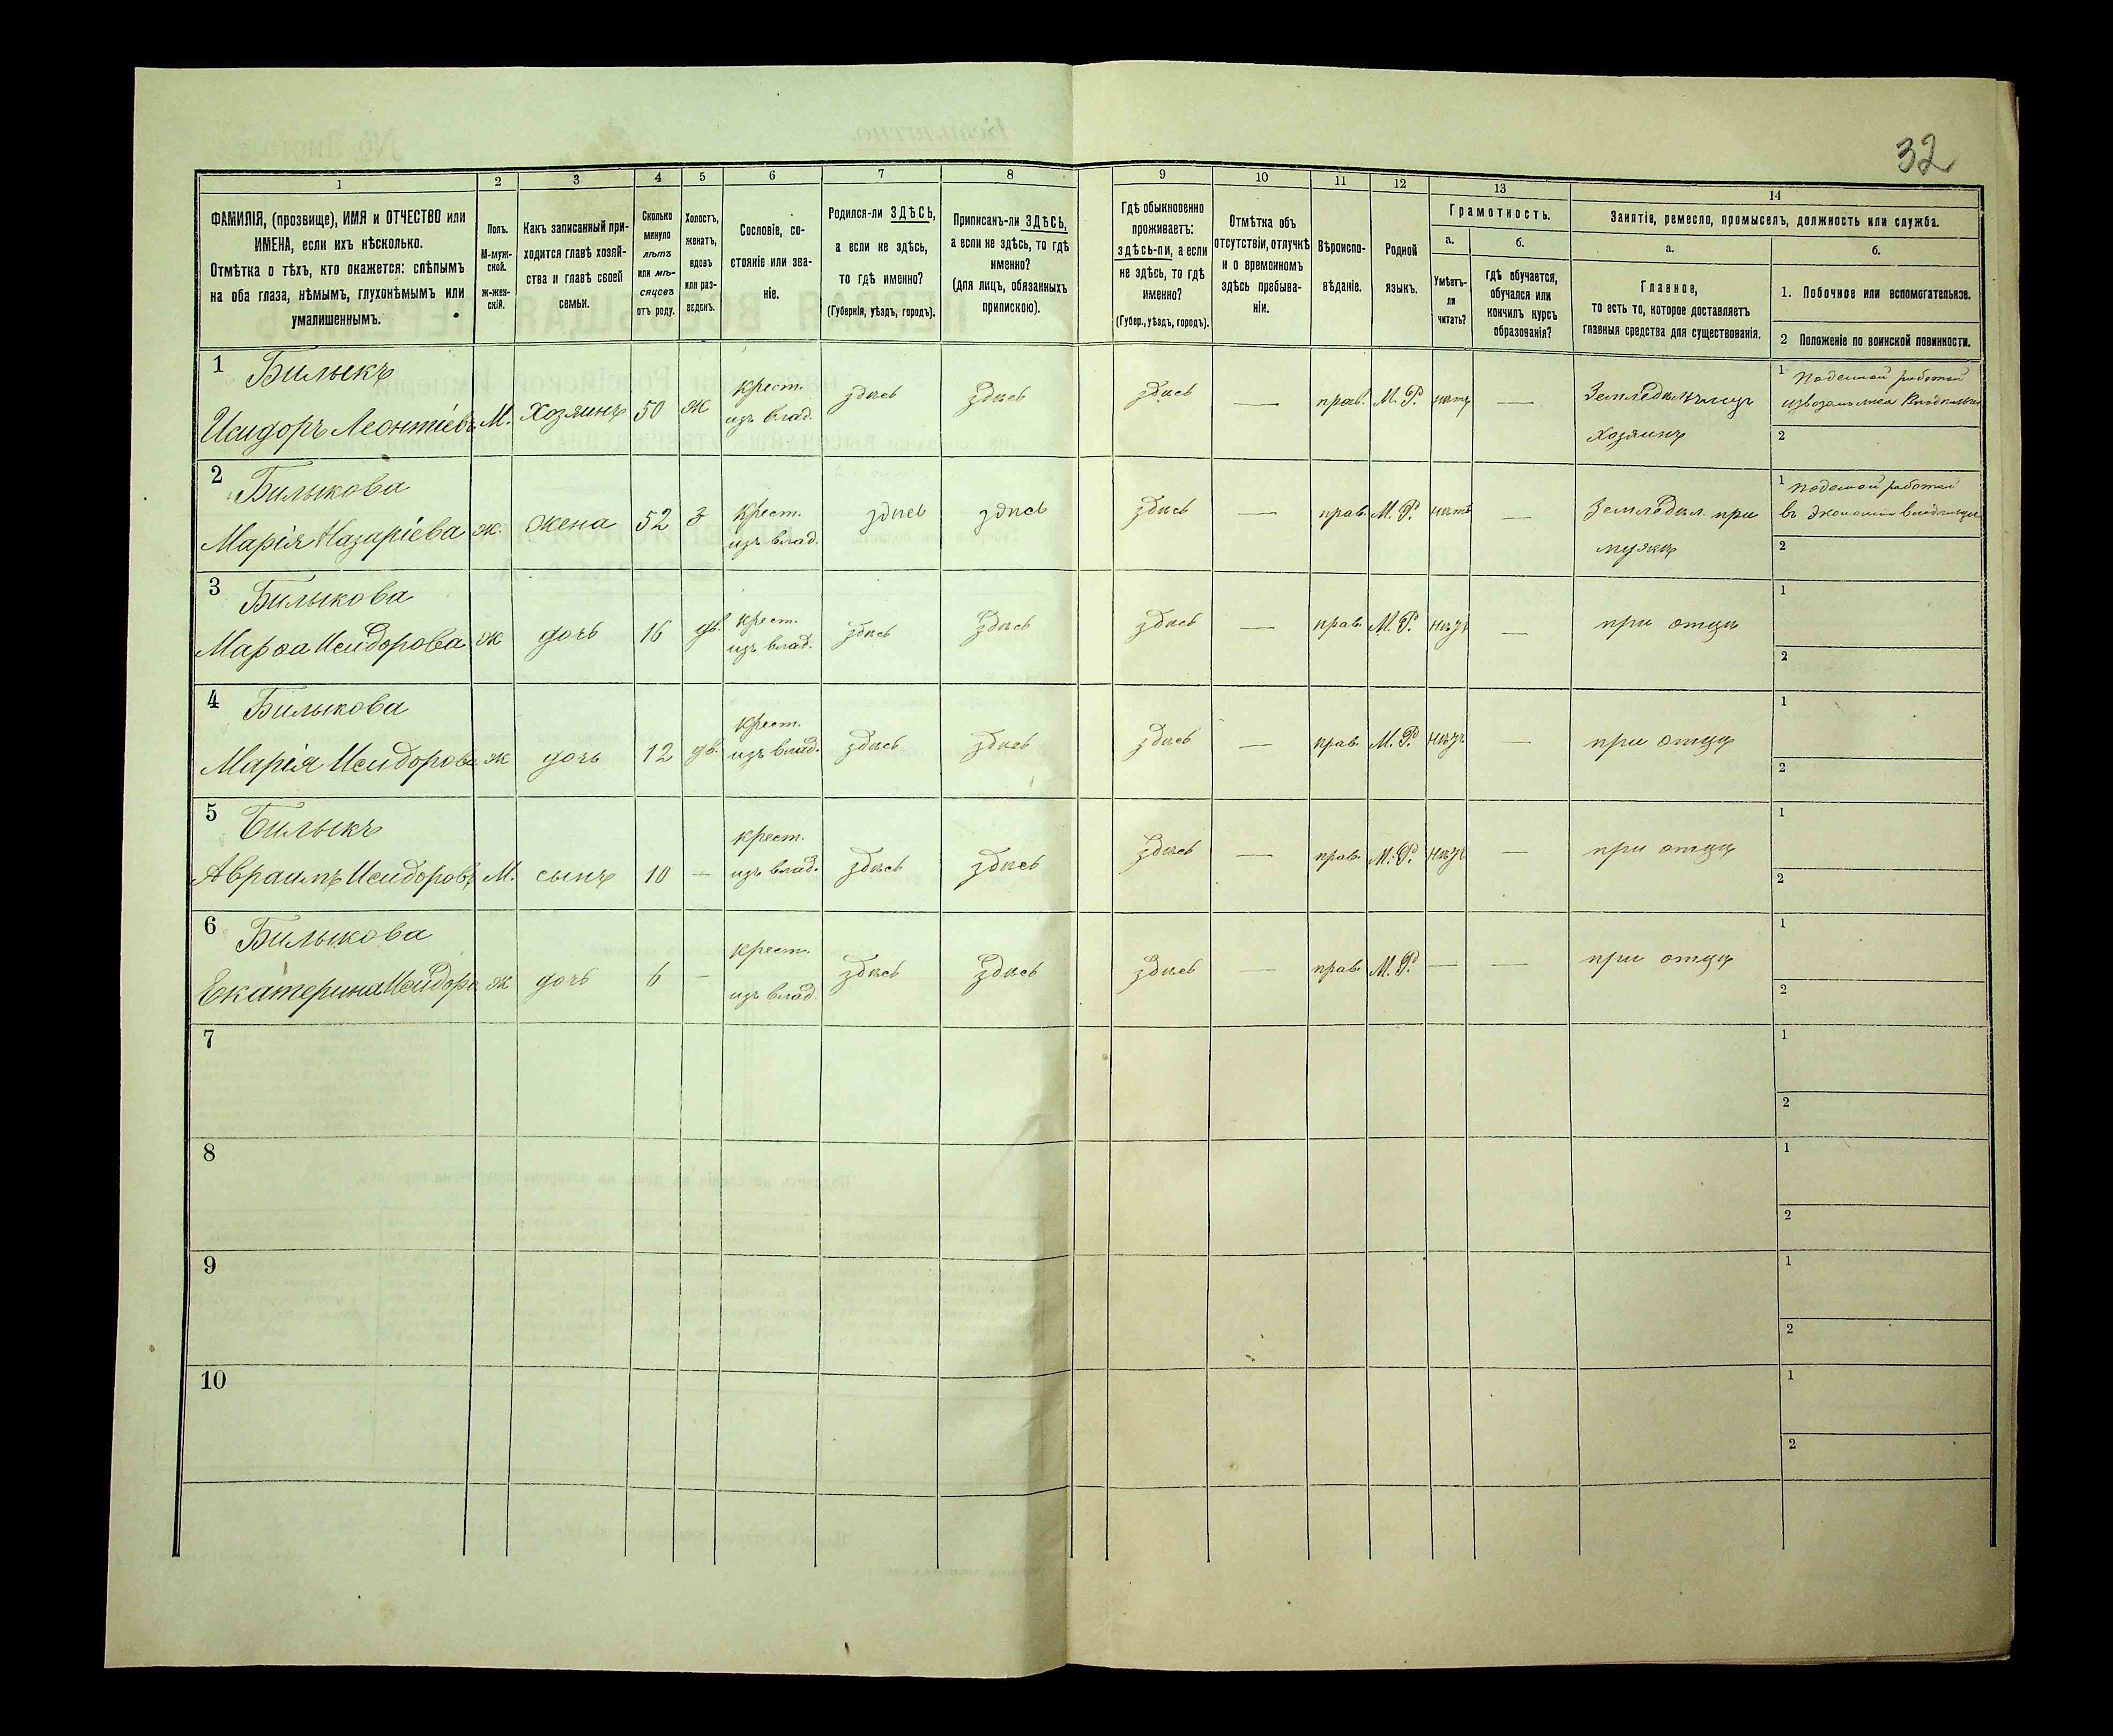 32
1 2 3 4 5 6 7 8 9 10 11 12 13 14
ФАМИЛІЯ, (прозвище), ИМЯ и ОТЧЕСТВО или
ИМЕНА, если ихъ нѣсколько.
Отмѣтка о тѣхъ, кто окажется: слѣпымъ
на оба глаза, нѣмымъ, глухонѣмымъ или
умалишеннымъ.
Полъ.
М-муж-
ской.
Ж-жен-
скій.
Какъ записанный при-
ходится главѣ хозяй-
ства и главѣ своей
семьи.
Сколько
минуло
лѣтъ
или мѣ-
сяцевъ
отъ роду.
Холостъ,
женатъ,
вдовъ
или раз-
веденъ.
Сословіе, со-
стояніе или зва-
ніе.
Родился-ли ЗДѢСЬ,
а если не здѣсь,
то гдѣ именно?
(Губернія, уѣздъ, городъ).
Приписанъ-ли ЗДѢСЬ,
а если не здѣсь, то гдѣ
именно?
(для лицъ, обязанныхъ
припискою).
Гдѣ обыкновенно
проживаетъ:
здѣсь-ли, а если
не здѣсь, то гдѣ
именно?
(Губер., уѣздъ, городъ).
Отмѣтка объ
отсутствіи, отлучкѣ
и о временномъ
здѣсь пребыва-
ніи.
Вѣроиспо-
вѣданіе.
Родной
языкъ.
Грамотность.
а.
Умѣетъ-
ли
читать?
б.
гдѣ обучается,
обучался или
кончилъ курсъ
образованія?
Занятіе, ремесло, промыселъ, должность или служба.
а.
Главное,
то есть то, которое доставляетъ
главныя средства для существованія.
б.
1. Побочное или вспомогательное.
2 Положеніе по воинской повинности.
1 Билыкъ
Исидоръ Леонтіевъ М. Хозяинъ 50 ж крест. изъ влад. здѣсь здѣсь здѣсь — прав. М. Р. нѣтъ — Земледѣлъецъ
хозяинъ
1 Поденной работой
2
2 Билыкова
Марія Назаріева ж. жена 52 з крест. изъ влад. здѣсь здѣсь здѣсь — прав. М. Р. нѣтъ — Земледѣл. при
мужѣ
1 Поденной работой
въ экономіи
2
3 Билыкова
Марѳа Исидорова ж дочь 16 дѣ. крест. изъ влад. здѣсь здѣсь здѣсь — прав. М. Р. нѣтъ — при отцѣ
1
2
4 Билыкова
Марія Исидорова ж дочь 12 дѣ. крест. изъ влад. здѣсь здѣсь здѣсь — прав. М. Р. нѣтъ — при отцѣ
1
2
5 Билыкъ
Авраамъ Исидоровъ М. сынъ 10 — крест. изъ влад. здѣсь здѣсь здѣсь — прав. М. Р. нѣтъ — при отцѣ
1
2
6 Билыкова
Екатерина Исидоро ж дочь 6 — крест. изъ влад. здѣсь здѣсь здѣсь — прав. М. Р. — — при отцѣ
1
2
7
1
2
8
1
2
9
1
2
10
1
2